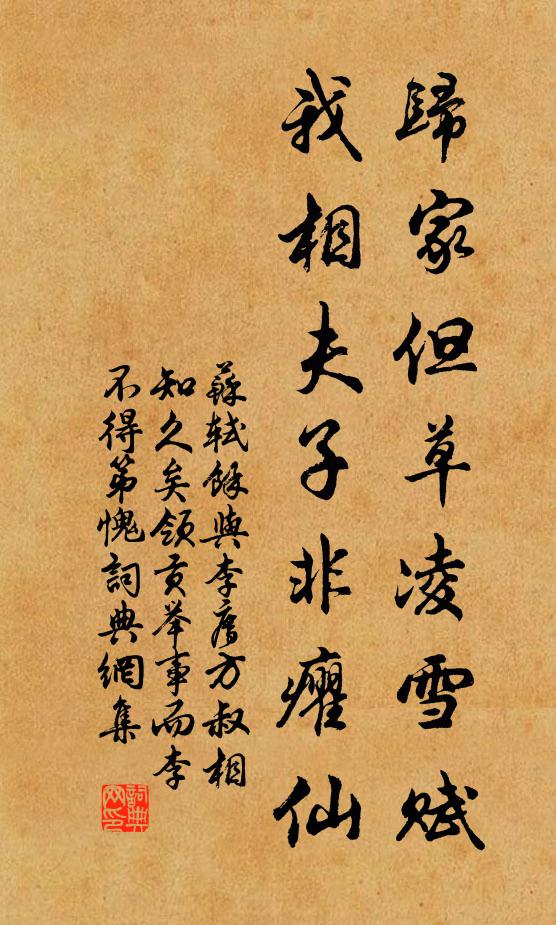 歸家但草凌雪賦
我相夫子非癯仙
蘇軾餘與李廌方叔相
知久矣領貢举事而李
不得第愧詞典網集
詞典
网印